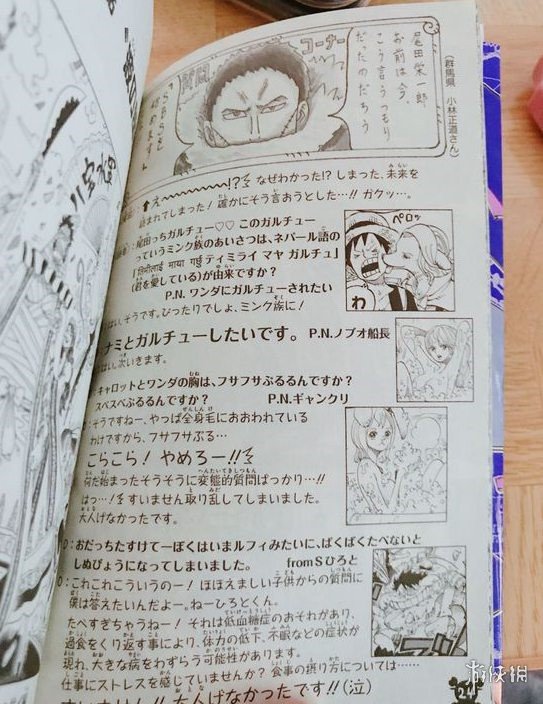 コーナー
質問
尾田栄一郎
お前は今、
こう言うつもり
だったのだろう
始めます」
(群馬県 小林正道さん)
え〜〜〜!? なぜわかった!? しまった、未来を
読まれてしまった! 確かにそう言おうとした…!! ガクッ…。
尾田っちガルチュー♡♡ このガルチュー
っていうミンク族のあいさつは、ネパール語の
「तिमीलाई माया गर्छु ティミライ マヤ ガルチュ」
(君を愛している)が由来ですか?
P.N. ワンダにガルチューされたい
はい、そうです。ぴったりでしょ、ミンク族に!
ペロッ
わ
ナミとガルチューしたいです。 P.N.ノブオ船長
はい、次いきます。
キャロットとワンダの胸は、フサフサぷるるんですか?
スベスベぷるるんですか? P.N.ギャンクリ
そうですねー、やっぱ全身毛におおわれている
わけですから、フサフサぷる…
こらこら! やめろー!!
何だ始まったそうそうに変態的質問ばっかり…!!
はっ…! すいません取り乱してしまいました。
大人げなかったです。
D:おだっちたすけてーぼくはいまルフィみたいに、ばくばくたべないと
しぬびょうになってしまいました。 fromSひろと
O:これこれこういうのー! ほほえましい子供からの質問に
僕は答えたいんだよー。ねーひろとくん。
たべすぎちゃうねー! それは低血糖症のおそれがあり、
過食をくり返す事により、体力の低下、不眠などの症状が
現れ、大きな病をわずらう可能性があります。
仕事にストレスを感じていませんか? 食事の摂り方については……
すいません!! 大人げなかったです!!(泣)
24
游侠网